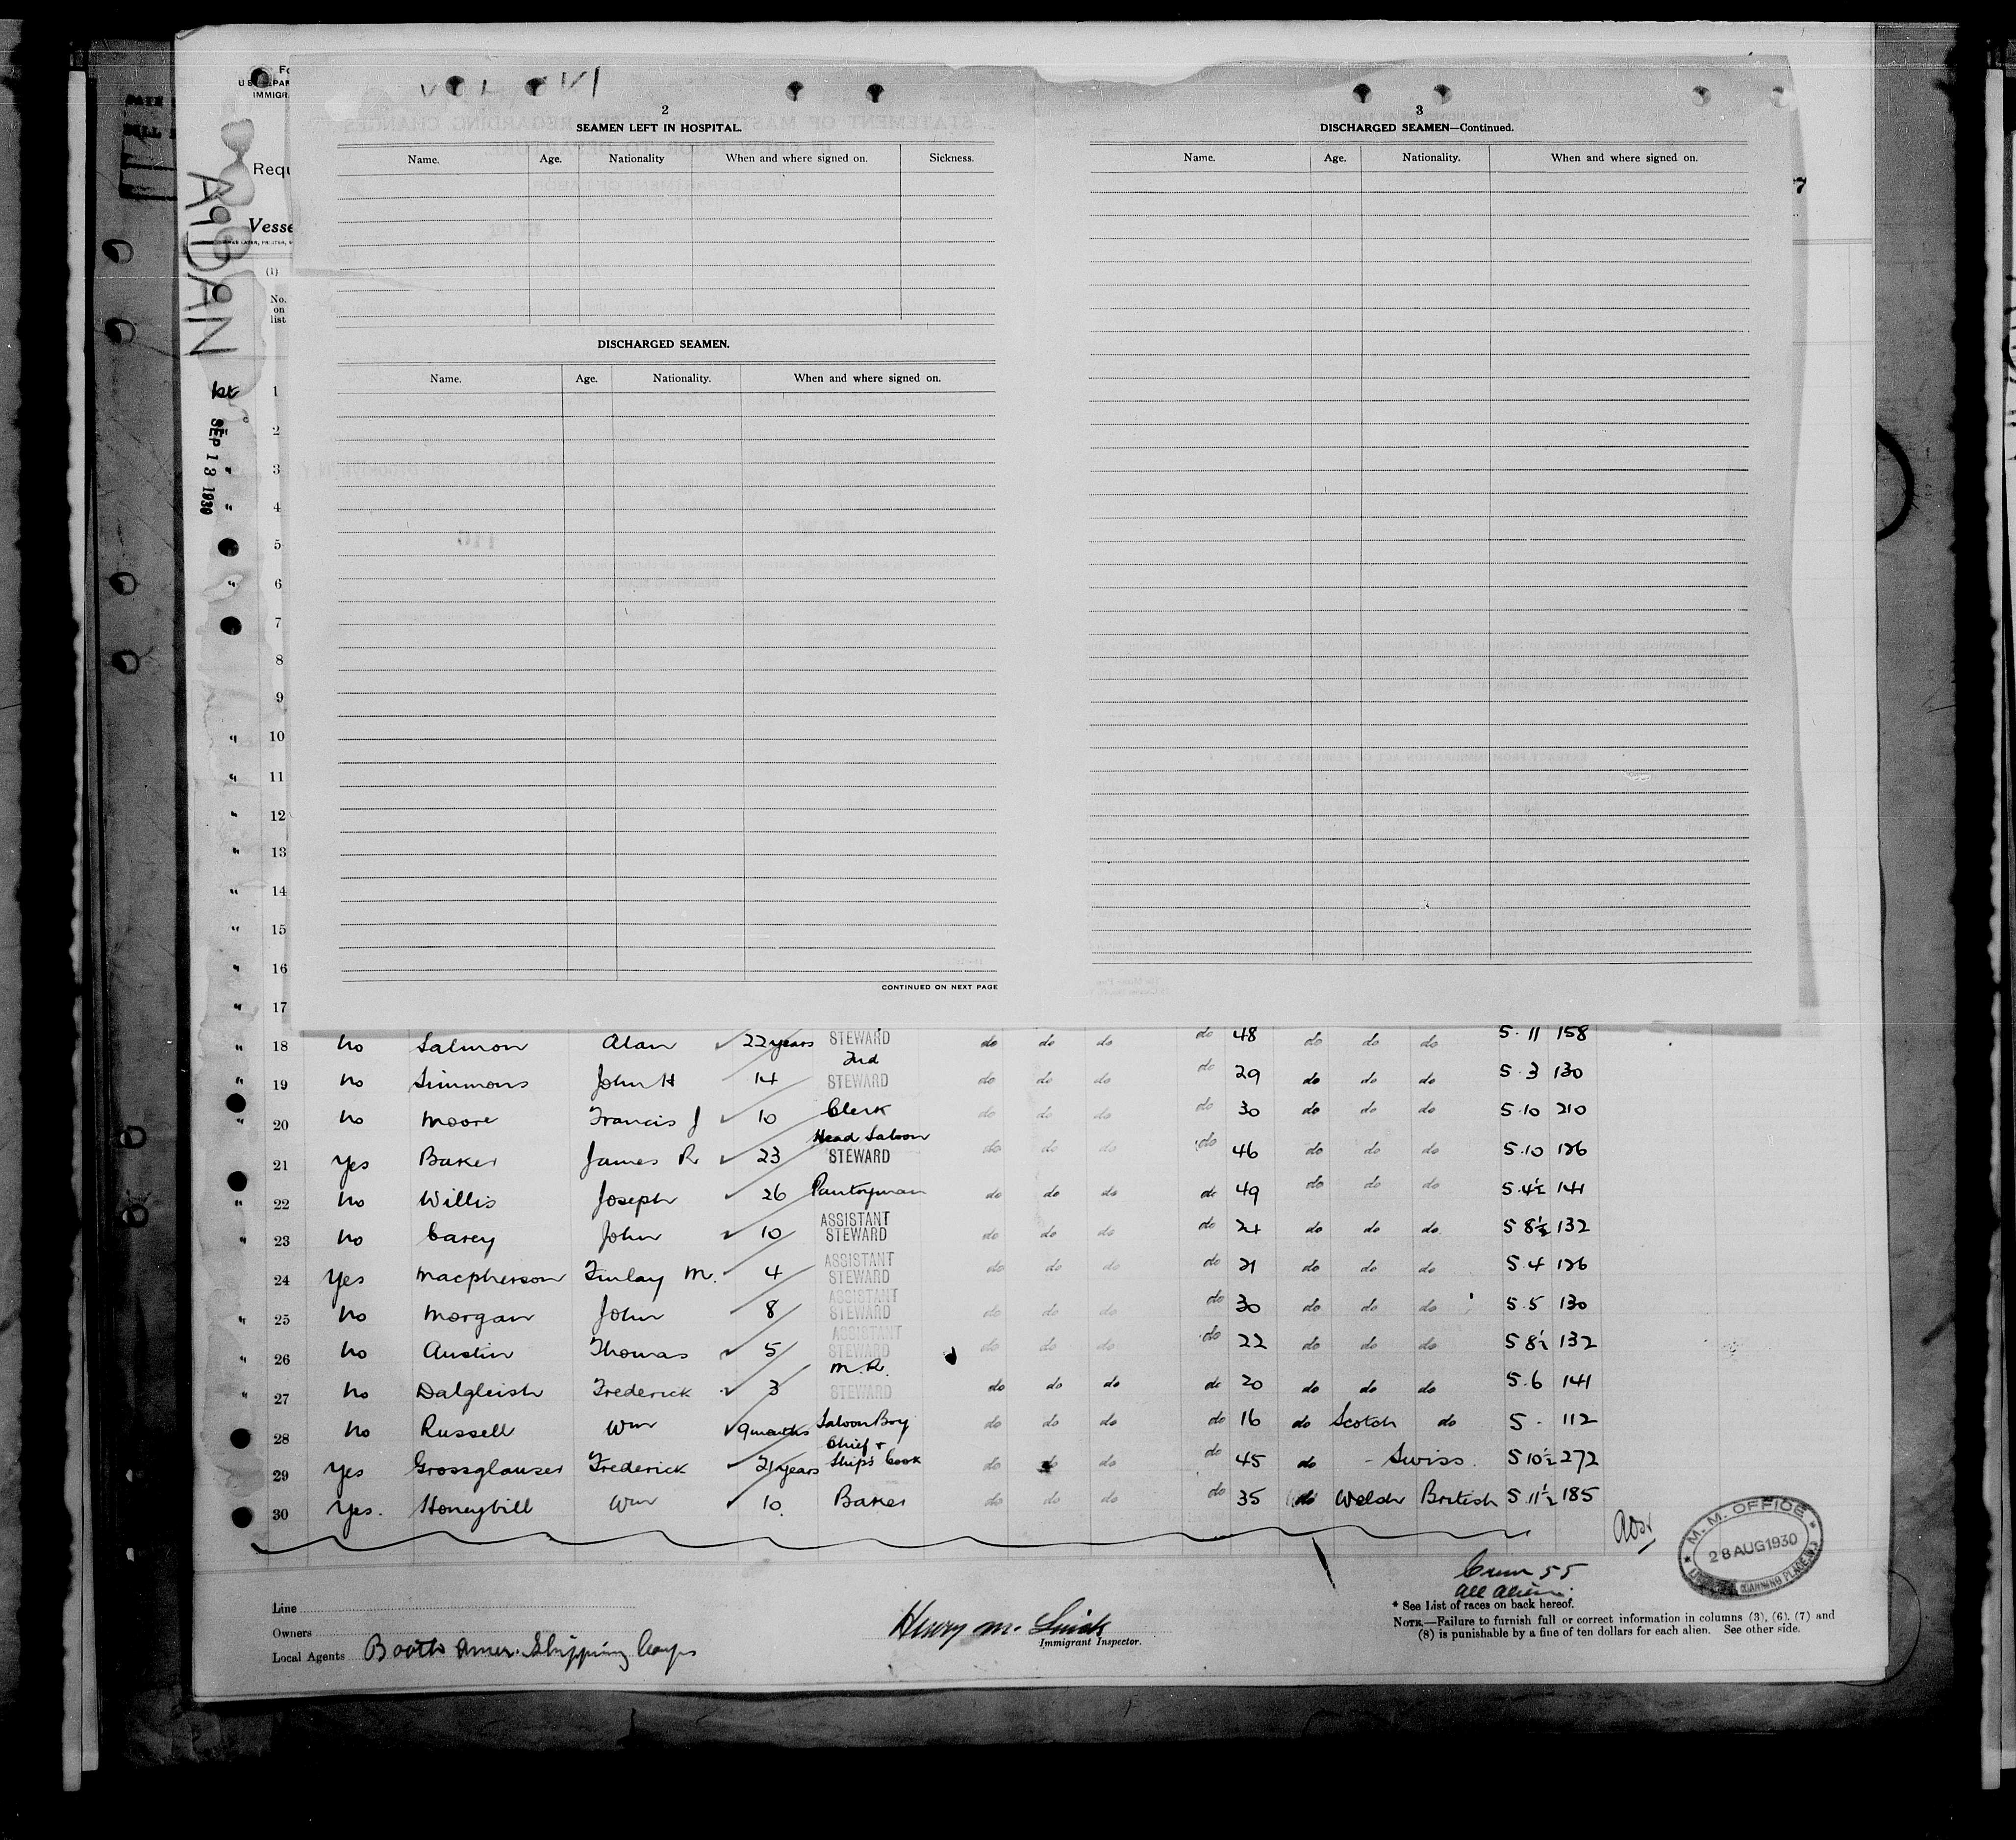 2
SEAMEN LEFT IN HOSPITAL.
Name. Age. Nationality When and where signed on. Sickness.
DISCHARGED SEAMEN.
Name. Age. Nationality. When and where signed on.
CONTINUED ON NEXT PAGE
3
DISCHARGED SEAMEN—Continued.
Name. Age. Nationality. When and where signed on.
IMMIGR
Requ
Vesse
(1)
No. on list
AIDAN
SEP 13 1930
1
2
3
4
5
6
7
8
9
10
11
12
13
14
15
16
17
18 No Salmon Alan 22 years STEWARD do do do do 48 do do do 5 11 158
19 No Simmons John H 14 2nd STEWARD do do do do 29 do do do 5 3 130
20 No Moore Francis J 10 Clerk do do do do 30 do do do 5 10 210
21 Yes Baker James R 23 Head Saloon STEWARD do do do do 46 do do do 5.10 126
22 No Willis Joseph 26 Pantryman do do do do 49 do do do 5.4½ 141
23 No Carey John 10 ASSISTANT STEWARD do do do do 24 do do do 5 8½ 132
24 Yes Macpherson Finlay M. 4 ASSISTANT STEWARD do do do do 21 do do do 5.4 126
25 No Morgan John 8 ASSISTANT STEWARD do do do do 30 do do do 5.5 130
26 No Austin Thomas 5 ASSISTANT STEWARD do do do do 22 do do do 5 8½ 132
27 No Dalgleish Frederick 3 M.R. STEWARD do do do do 20 do do do 5.6 141
28 No Russell Wm 9 months Saloon Boy do do do do 16 do Scotch do 5 - 112
29 Yes Grossglauser Frederick 21 years Chief + Ships Cook do do do do 45 do - Swiss. 5 10½ 272
30 Yes. Honeybill Wm 10. Baker do do do do 35 do Welsh British 5.11½ 185
M. M. OFFICE
28 AUG 1930
Crew 55
All Aliens.
* See List of races on back hereof.
NOTE.—Failure to furnish full or correct information in columns (3), (6), (7) and
(8) is punishable by a fine of ten dollars for each alien. See other side.
Line
Owners
Local Agents Booth Amer. Shipping Corpn
Henry M.
Immigrant Inspector.